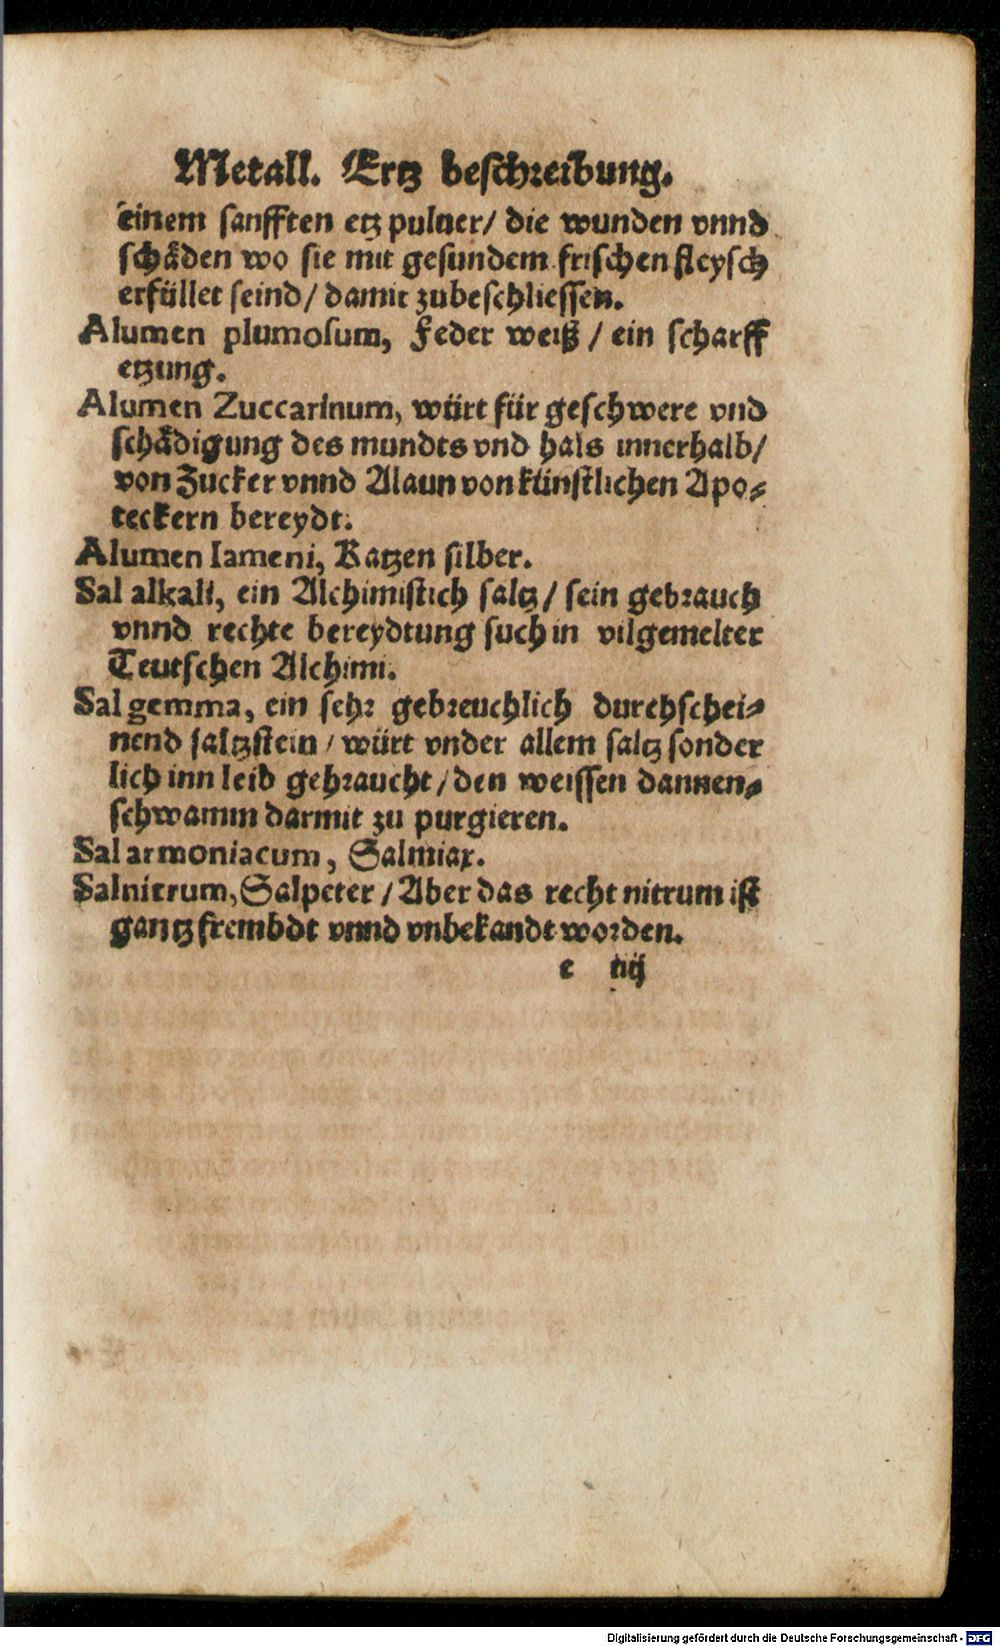 Metall. Ertz beschreibung.
einem sanfften etz puluer/ die wunden vnnd
schäden wo sie mit gesundem frischen fleysch
erfüllet seind/ damit zubeschliessen.
Alumen plumosum, Feder weiß / ein scharff
etzung.
Alumen Zuccarinum, würt für geschwere vnd
schädigung des mundts vnd hals innerhalb/
von Zucker vnnd Alaun von künstlichen Apo⸗
teckern bereydt.
Alumen Iameni, Katzen silber.
Sal alkali, ein Alchimistich saltz/ sein gebrauch
vnnd rechte bereydtung such in vilgemelter
Teutschen Alchimi.
Sal gemma, ein sehr gebreuchlich durchschei⸗
nend saltzstein / würt vnder allem saltz sonder
lich inn leib gebraucht/ den weissen dannen⸗
schwamm darmit zu purgieren.
Sal armoniacum, Salmiax.
Salnitrum, Salpeter / Aber das recht nitrum ist
gantz frembdt vnnd vnbekandt worden.
e iiij
Digitalisierung gefördert durch die Deutsche Forschungsgemeinschaft - DFG